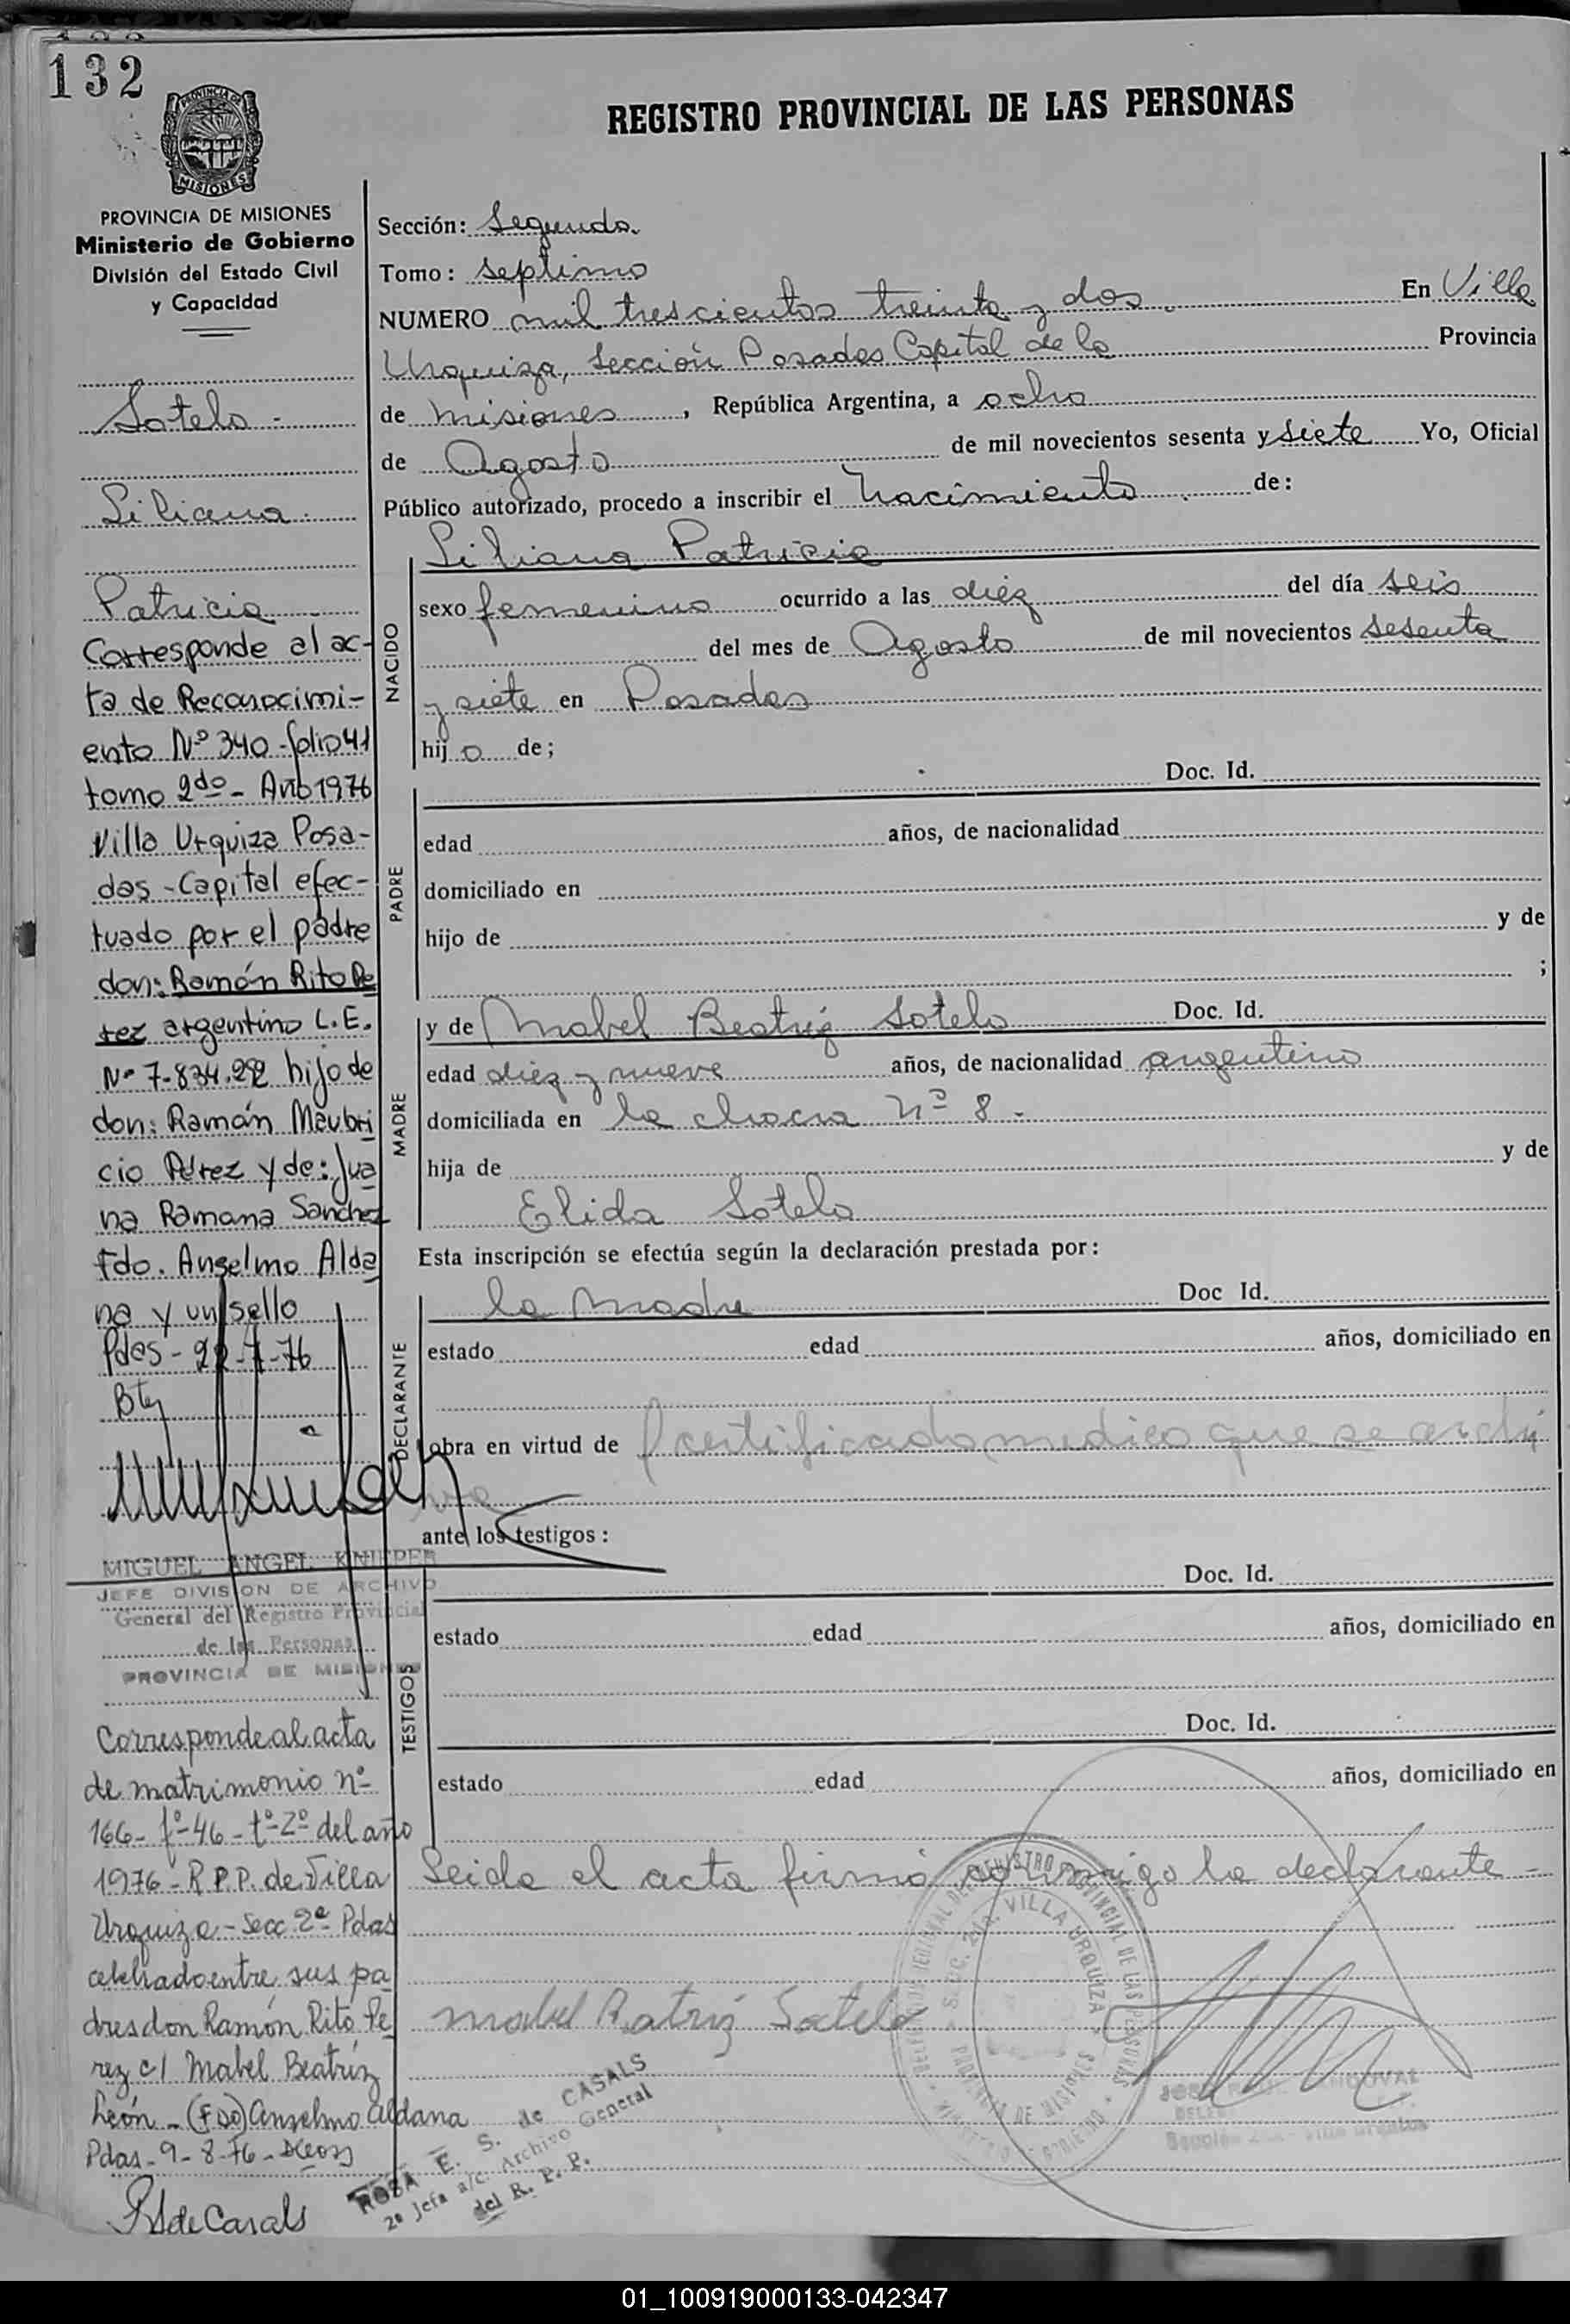 132
PROVINCIA DE
MISIONES
REGISTRO PROVINCIAL DE LAS PERSONAS
PROVINCIA DE MISIONES
Ministerio de Gobierno
División del Estado Civil
y Capacidad
Sotelo -
Liliana
Patricia
Corresponde al ac-
ta de Reconocimi-
ento Nº 340 - folio 41
tomo 2do - Año 1976
Villa Urquiza Posa-
das - Capital efec-
tuado por el padre
don: Ramón Rito Pe
rez argentino L.E.
Nº 7.834.292 hijo de
don: Ramón Maubri
cio Pérez y de: Jua
na Ramona Sanchez
Fdo. Anselmo Alda
na y un sello
Pdas - 22-7-76
MIGUEL ANGEL KNIEPER
JEFE DIVISION DE ARCHIVO
General del Registro Provincial
de las Personas
PROVINCIA DE MISIONES
Corresponde al acta
de matrimonio nº
166 - fº 46 - tº 2º del año
1976 - R.P.P. de Villa
Urquiza - Secc 2ª Pdas
celebrado entre sus pa
dres don Ramón Rito Pe
rez c/ Mabel Beatríz
León - (Fdo) Anselmo Aldana
Pdas - 9 - 8 - 76 -
RS de Casals
Sección: Segunda.
Tomo: septimo
NUMERO mil trescientos treinta y dos. En Villa
Urquiza, Sección Posadas Capital de la Provincia
de Misiones, República Argentina, a ocho
de Agosto de mil novecientos sesenta y siete Yo, Oficial
Público autorizado, procedo a inscribir el nacimiento de:
NACIDO
Liliana Patricia
sexo femenino ocurrido a las diéz del día seis
del mes de Agosto de mil novecientos sesenta
y siete en Posadas
hij a de;
PADRE
Doc. Id.
edad años, de nacionalidad
domiciliado en
hijo de y de
;
MADRE
y de Mabel Beatriz Sotelo Doc. Id.
edad diéz y nueve años, de nacionalidad argentina
domiciliada en la chacra nº 8 -
hija de y de
Elida Sotelo
Esta inscripción se efectúa según la declaración prestada por:
DECLARANTE
la madre Doc Id.
estado edad años, domiciliado en
obra en virtud de certificado medico que se archi
va
ante los testigos:
TESTIGOS
Doc. Id.
estado edad años, domiciliado en
Doc. Id.
estado edad años, domiciliado en
Leida el acta firmó conmigo la declarante -
Mabel Batriz Sotelo
REGISTRO PROVINCIAL DE LAS PERSONAS
SECC. 2da. VILLA URQUIZA
PROVINCIA DE MISIONES
ROSA E. S. de CASALS
2ª Jefa a/c. Archivo General
del R. P. P.
01_100919000133-042347